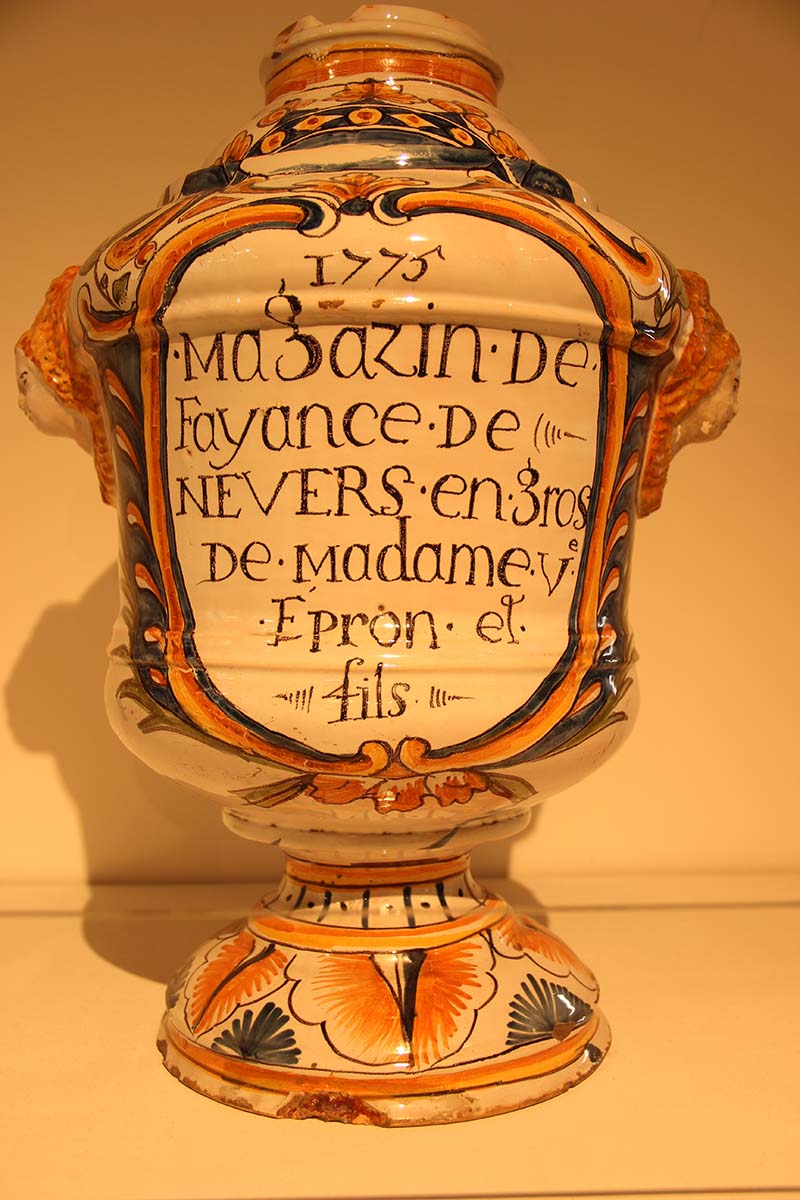 1775
·Magazin·De·
Fayance·De
NEVERS·en·gros
De·Madame·Vᵉ
·Épron·et·
fils·